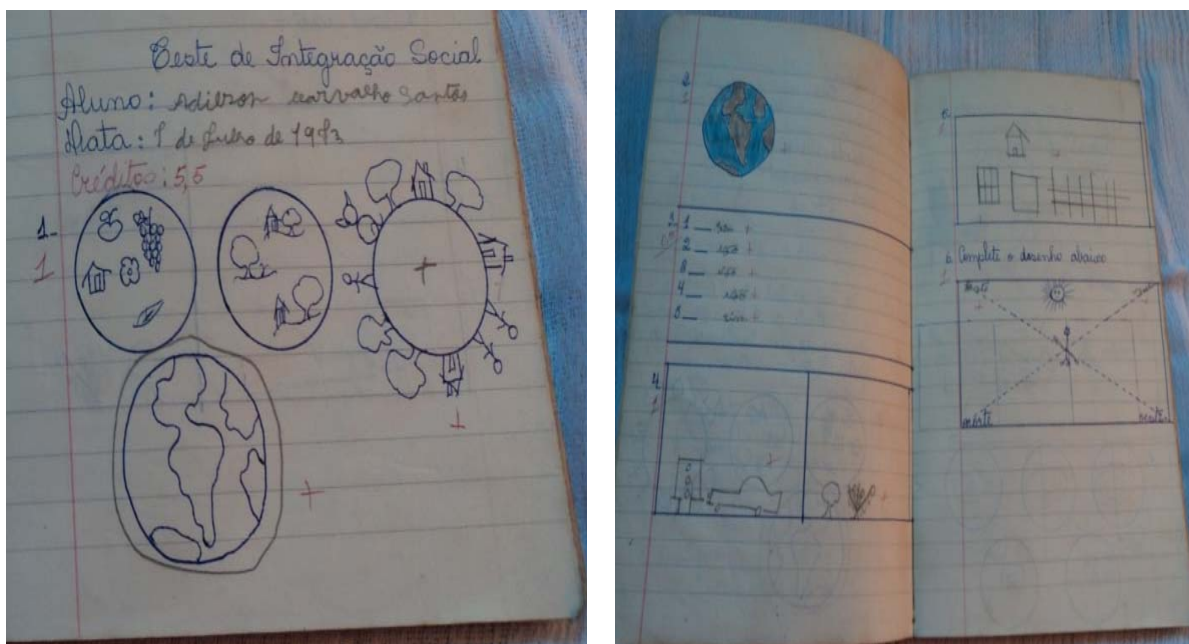 Teste de Integração Social
Aluno: Adilson carvalho Santos
Data: 1 de Julho de 1973
Créditos: 5,5
1-
1
+
1
+
2
+
1 __ +
2 __ não +
3 __ não +
4 __ não +
5 __ sim +
4
+
+
6 Complete o desenho abaixo
norte